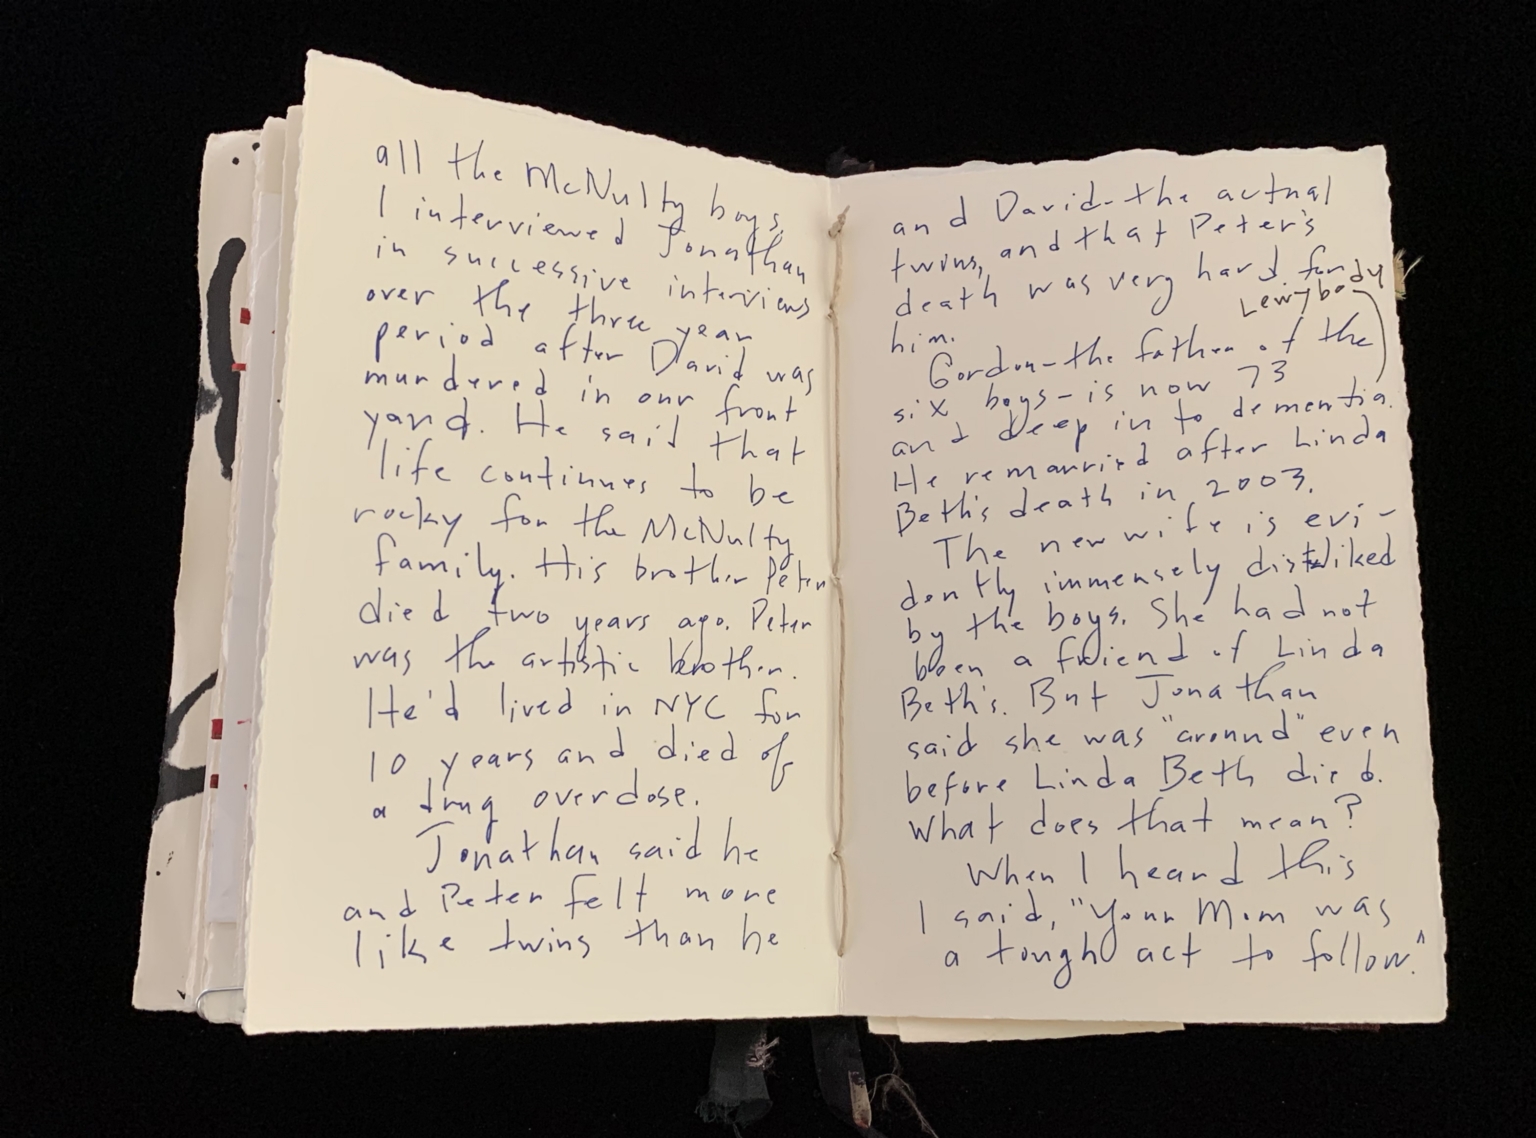 all the McNulty boys.
I interviewed Jonathan
in successive interviews
over the three year
period after David was
murdered in our front
yard. He said that
life continues to be
rocky for the McNulty
family. His brother Peter
died two years ago. Peter
was the artistic brother.
He'd lived in NYC for
10 years and died of
a drug overdose.
Jonathan said he
and Peter felt more
like twins than he
and David-the actual
twins, and that Peter's
death was very hard for
him.
Lewybody
Gordon-the father of the
six boys-is now 73
and deep in to dementia.
He remarried after Linda
Beth's death in 2003.
The new wife is evi-
dently immensely disliked
by the boys. She had not
been a friend of Linda
Beth's. But Jonathan
said she was "around" even
before Linda Beth died.
What does that mean?
When I heard this
I said, "Your Mom was
a tough act to follow."